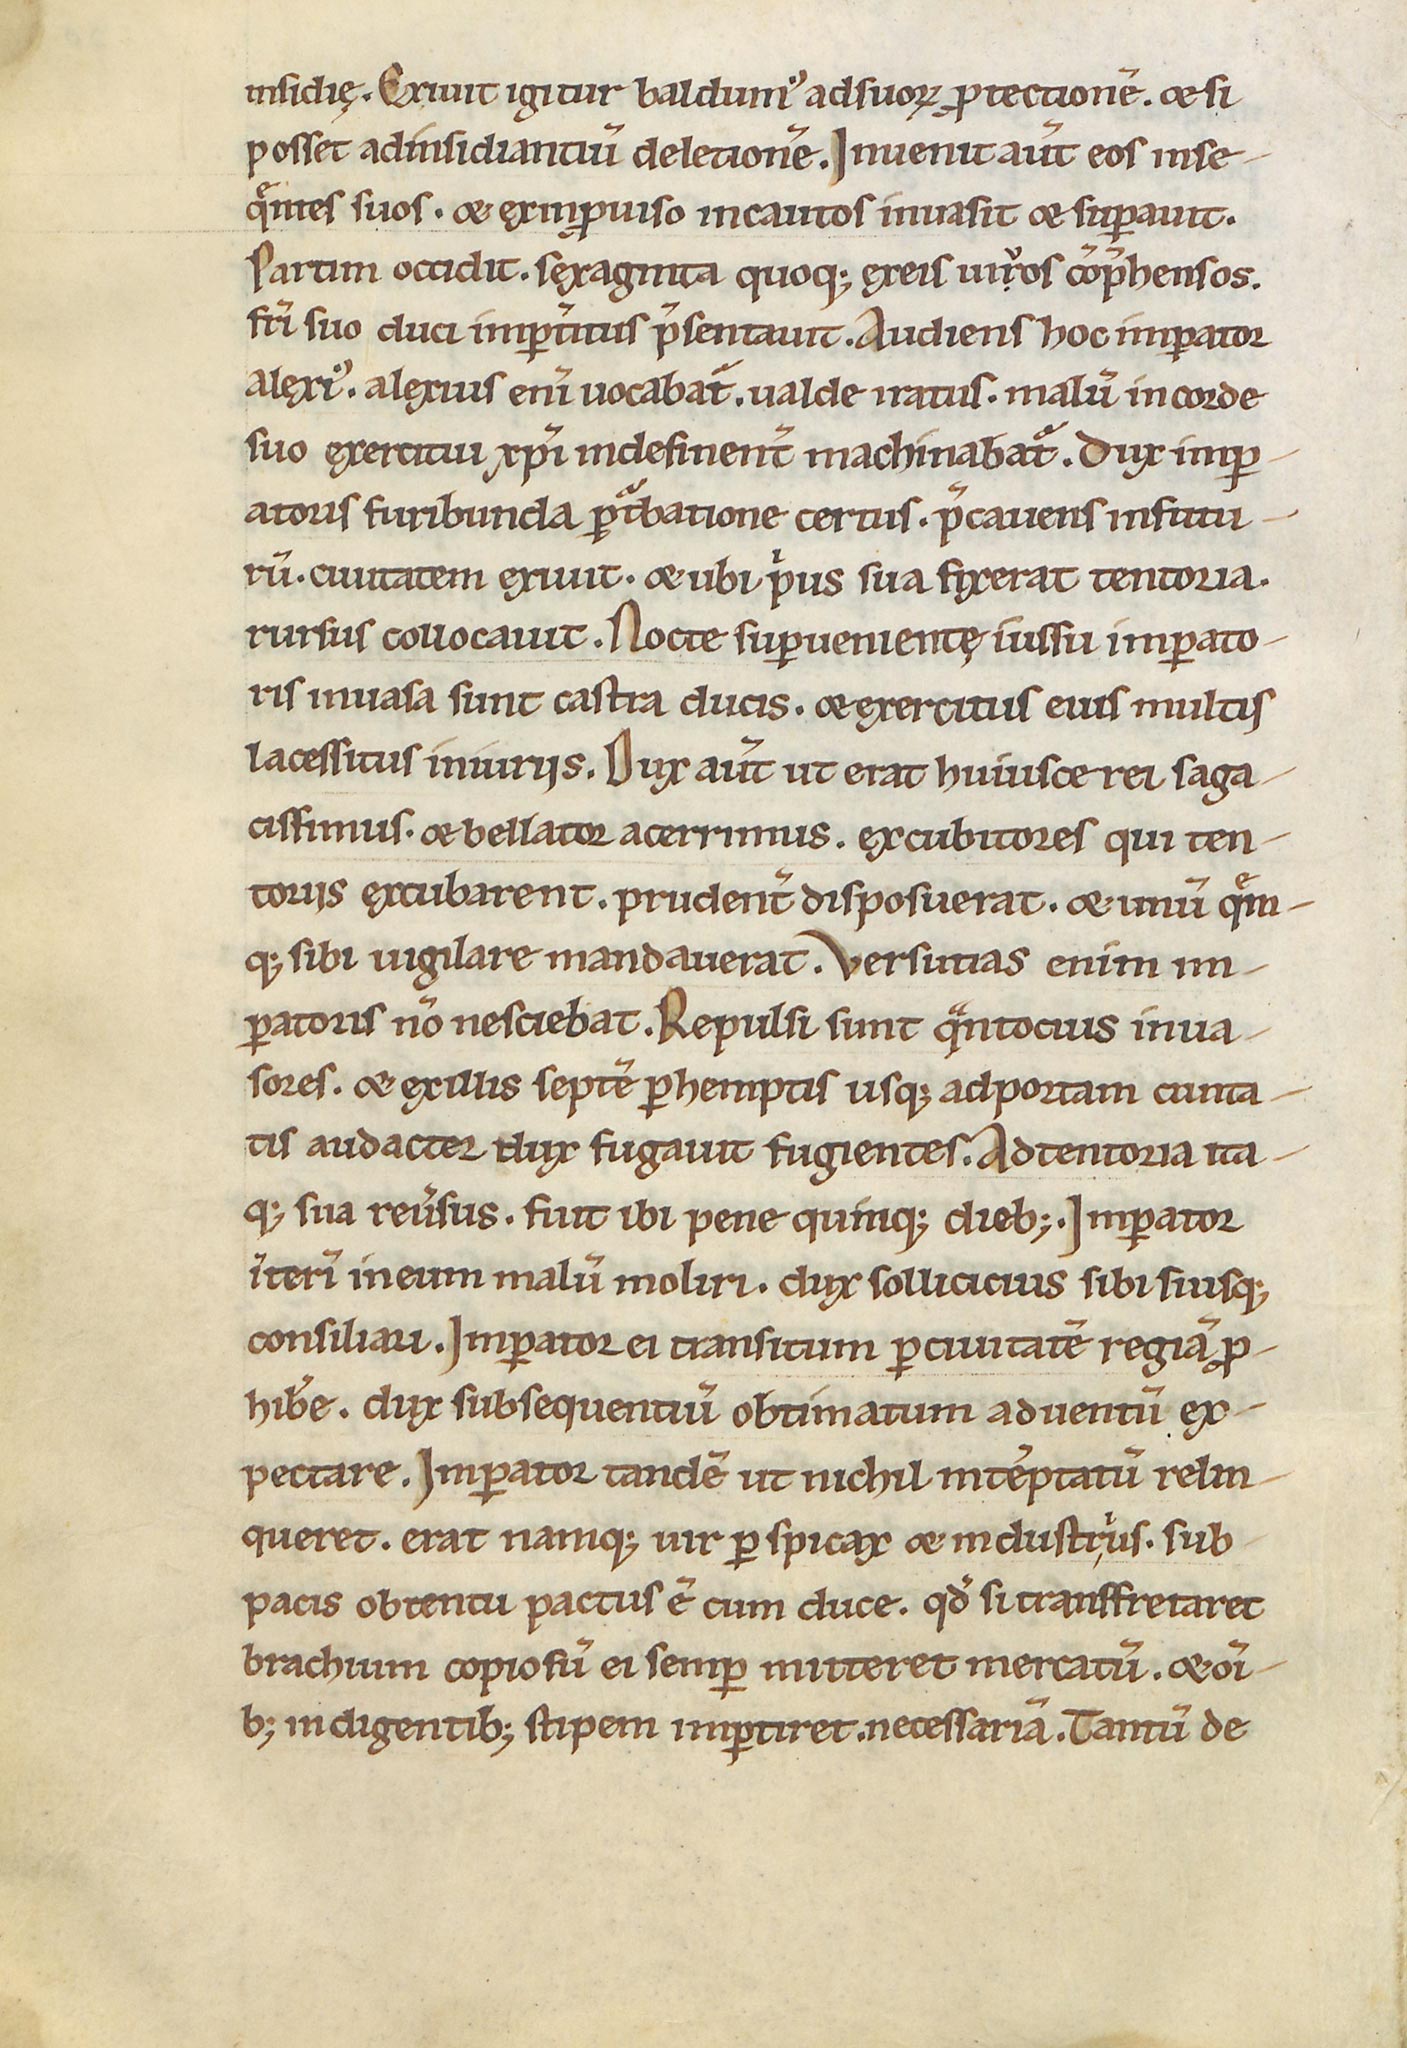 insidię. Exiuit igitur balduinꝰ ad suoꝝ ꝓtectionē. & si
posset ad insidiantiū deletionē. Inuenit aūt eos inse-
qͣntes suos. & ęx inꝓuiso incautos inuasit & suꝑauit.
Partim occidit. sęxaginta quoq; ęx eis uiros cōp̄hensos.
fr̄i suo duci imꝑtitus p̄sentauit. Audiens hoc imꝑator
alęxiꝰ. alęxius eni̅ uocabat᷑. ualde iratus. malū in corde
suo ęxercitui xp̄i indesinent̄ machinabat᷑. Dux imꝑ-
atoris furibunda ꝑtͧbatione certus. p̄cauens in futu-
rū. ciuitatem exiuit. & ubi pⁱus sua fixerat tentoria.
rursus collocauit. Nocte suꝑuenientę iussu imꝑato-
ris inuasa sunt castra ducis. & ęxercitus eius multis
lacessitus iniurijs. Dux aūt ut erat huiusce rei saga-
cissimus. & bellator acerrimus. excubitores qui ten-
torijs ęxcubarent. prudent̄ disposuerat. & unū qͤm-
q; sibi uigilare mandauerat. Versutias enim im-
ꝑatoris nō nesciebat. Repulsi sunt qͣntocius inua-
sores. & ęx illis septē ꝑhemptis usq; ad portam ciuita-
tis audacter dux fugauit fugientes. Ad tentoria ita-
q; sua reuͤsus. fuit ibi pene quinq; dieb;. Imꝑator
iterī in eum malū moliri. dux sollicicius sibi suisq;
consiliari. Imꝑator ei transitum ꝑ ciuitatē regiā ꝓ-
hib̄e. dux subsequentiū obtimatum aduentū ex-
pectare. Imꝑator tandē ut nichil intēptatū relin-
queret. erat namq; uir ꝑspicax & industrius. sub
pacis obtentu pactus ē cum duce. qd̄ si transfretaret
brachium copiosū ei semꝑ mitteret mercatū. & oi̅-
b; indigentib; stipem imꝑtiret necessariā. Tantū de